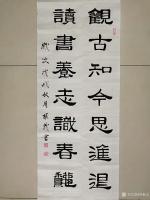 觀古知今思進退
讀書養志識春龝
歲次戊戌秋月